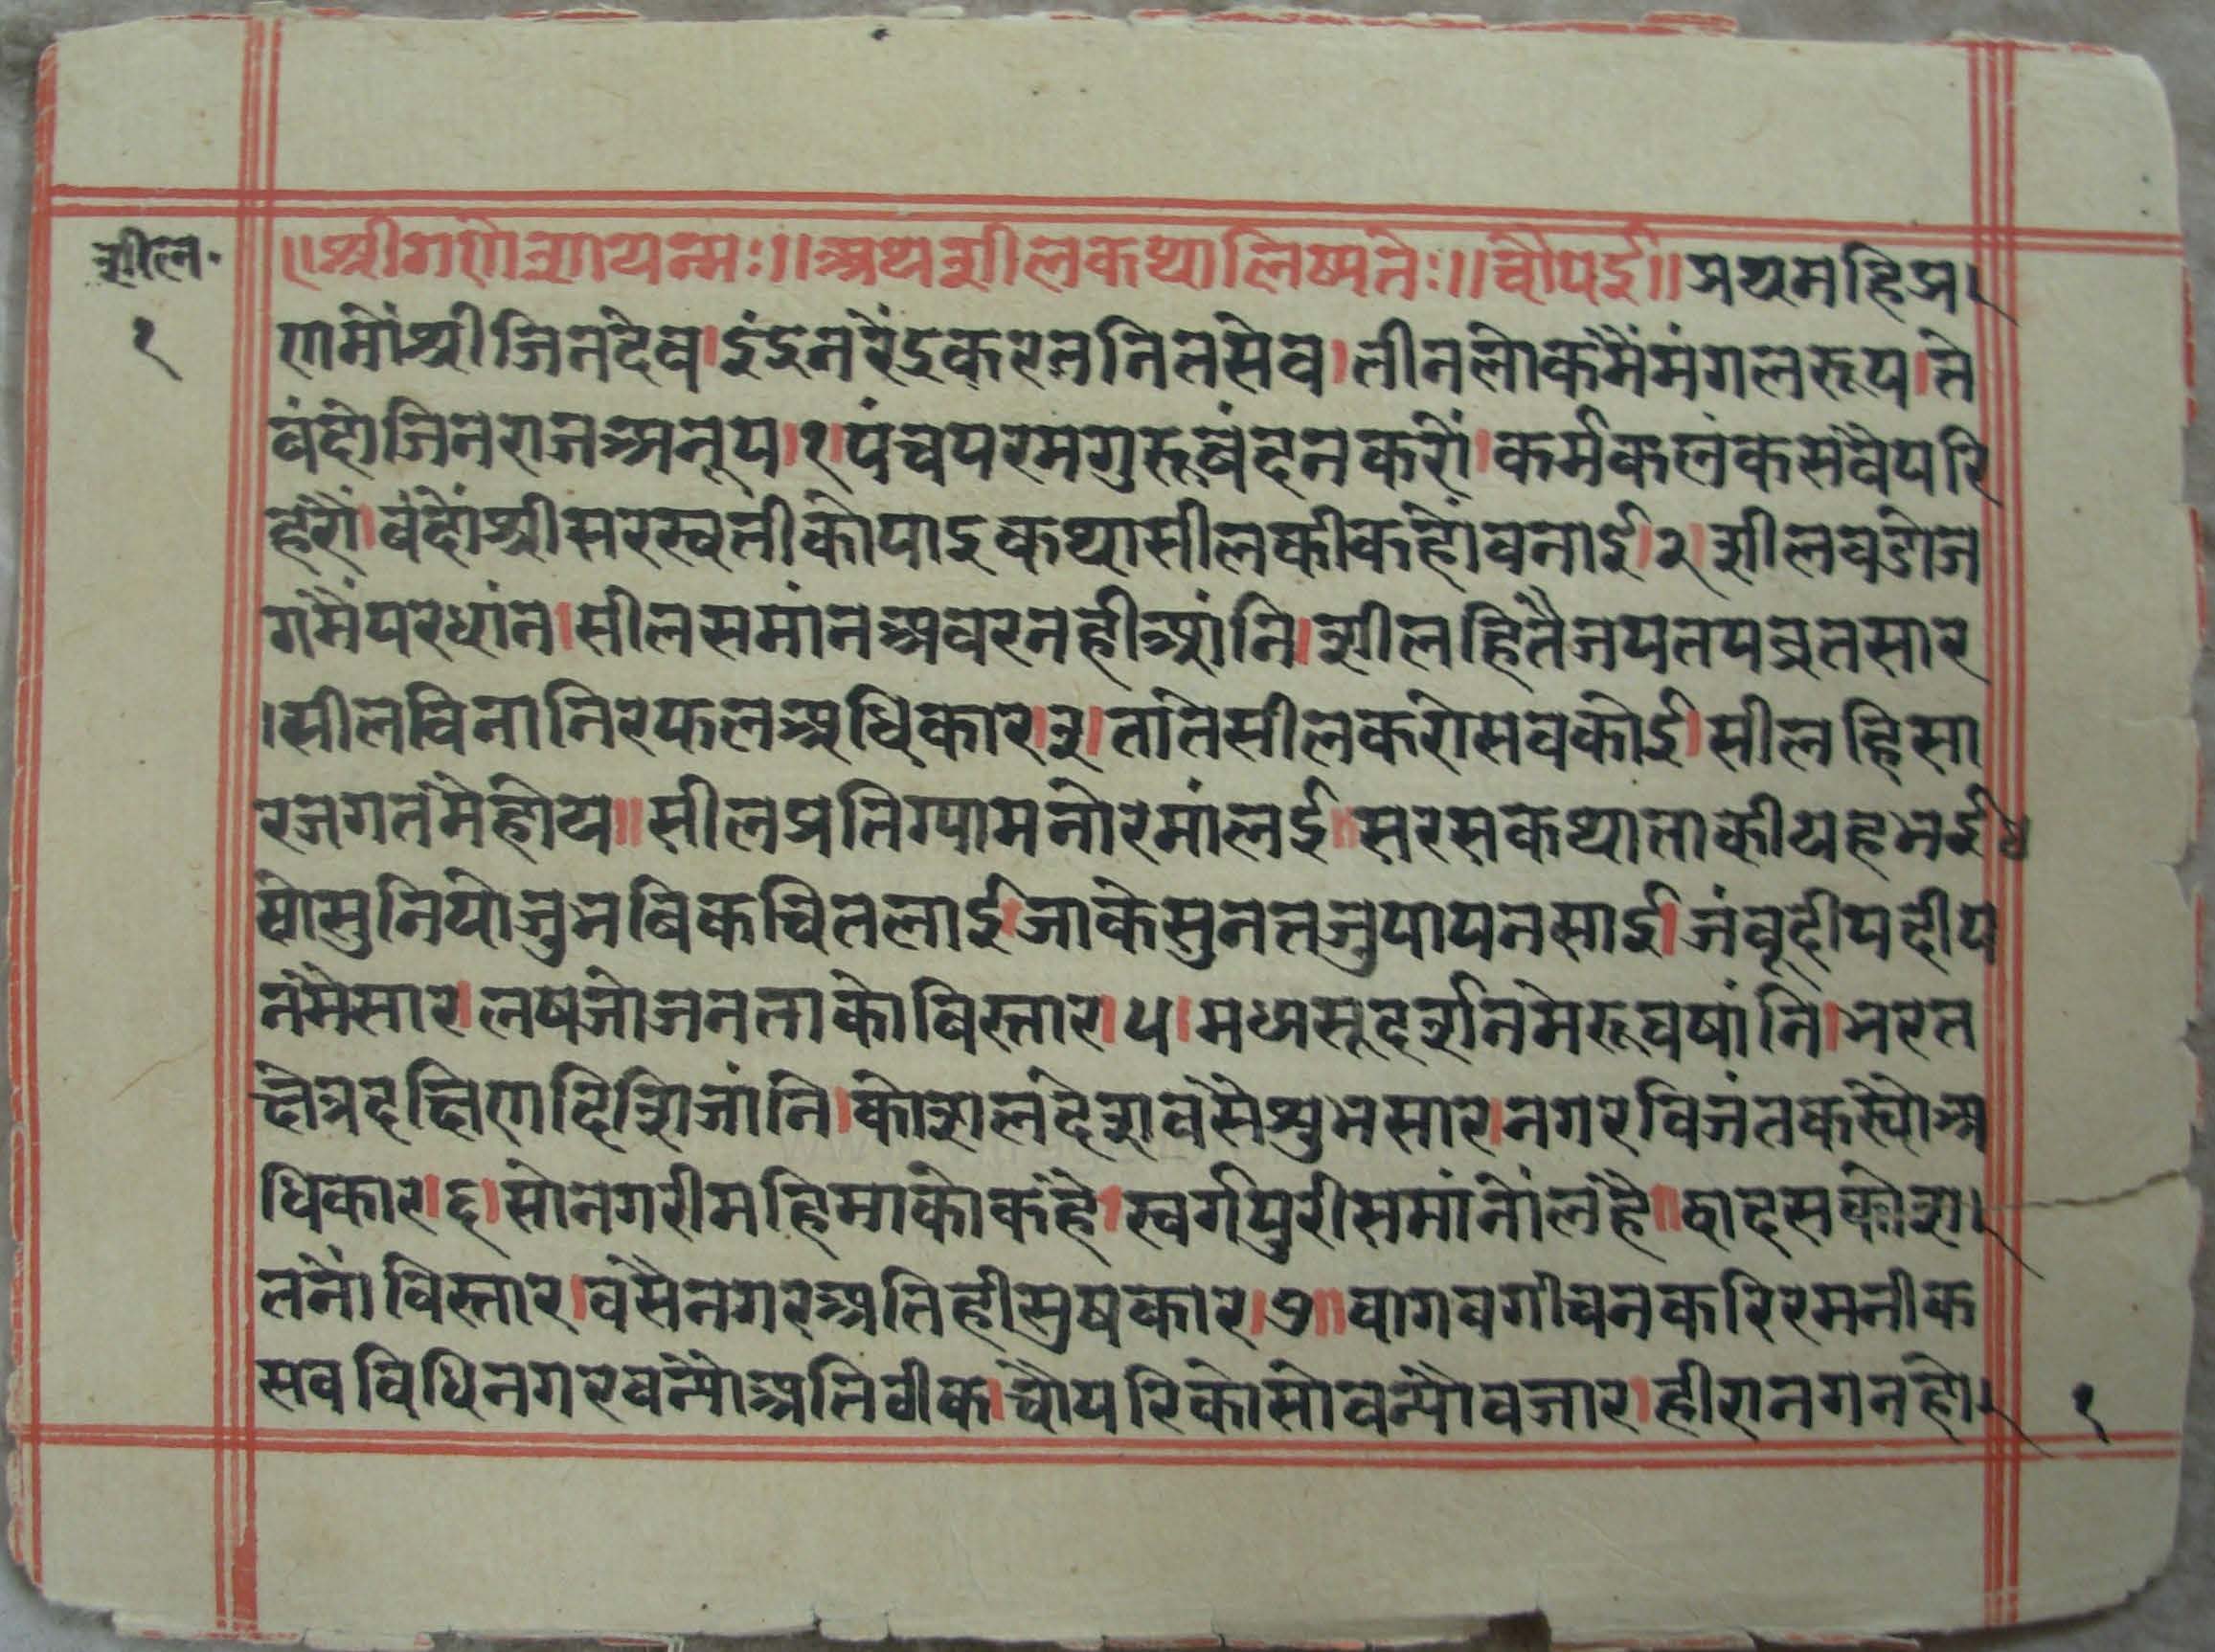 शील॰
१
॥श्रीगणेशायन्मः॥अथशीलकथालिष्यतेः॥चौपई॥प्रथमहिप्र।
णमौंश्रीजिनदेव।इंद्रनरेंद्रकरतनितसेव।तीनलोकमैंमंगलरूप।ते
वंदोजिनराजअनूप।१।पंचपरमगुरूवंदनकरौं।कर्मकलंकसवैपरि
हरौं।वंदौंश्रीसरस्वतीकोपाइकथासीलकीकहौंवनाई।२।शीलवडोज
गमैंपरधांन।सीलसमांनअवरनहीआंनि।शीलहितैजपतपव्रतसार
।सीलविनानिरफलअधिकार।३।तातेसीलकरोसवकोई।सीलहिसा
रजगतमैहोय॥सीलप्रतिग्यामनोरमांलई॥सरसकथाताकीयहभई४
सोसुनियोजुभविकचितलाई।जाकेसुनतजुपापनसाई।जंवूद्वीपद्वीप
नमैसार।लषजोजनताकोविस्तार।५।मध्यसूदर्शनमेरूवषांनि।भरत
क्षेत्रदक्षिणदिशिजांनि।कोशलदेशवसैशुभसार।नगरविजंतकह्योअ
धिकार।६।सोनगरीमहिमाकोकहै।स्वर्गपुरीसमांनोंलहै॥द्वादसकोश।
तनौंविस्तार।वसैनगरअतिहीसुषकार।७॥वागवगीवनकरिरमनीक
सवविधिनगरवन्यौअतिवीक।चौपरिकोसोवन्यौवजार।हीरानगनहो।
१